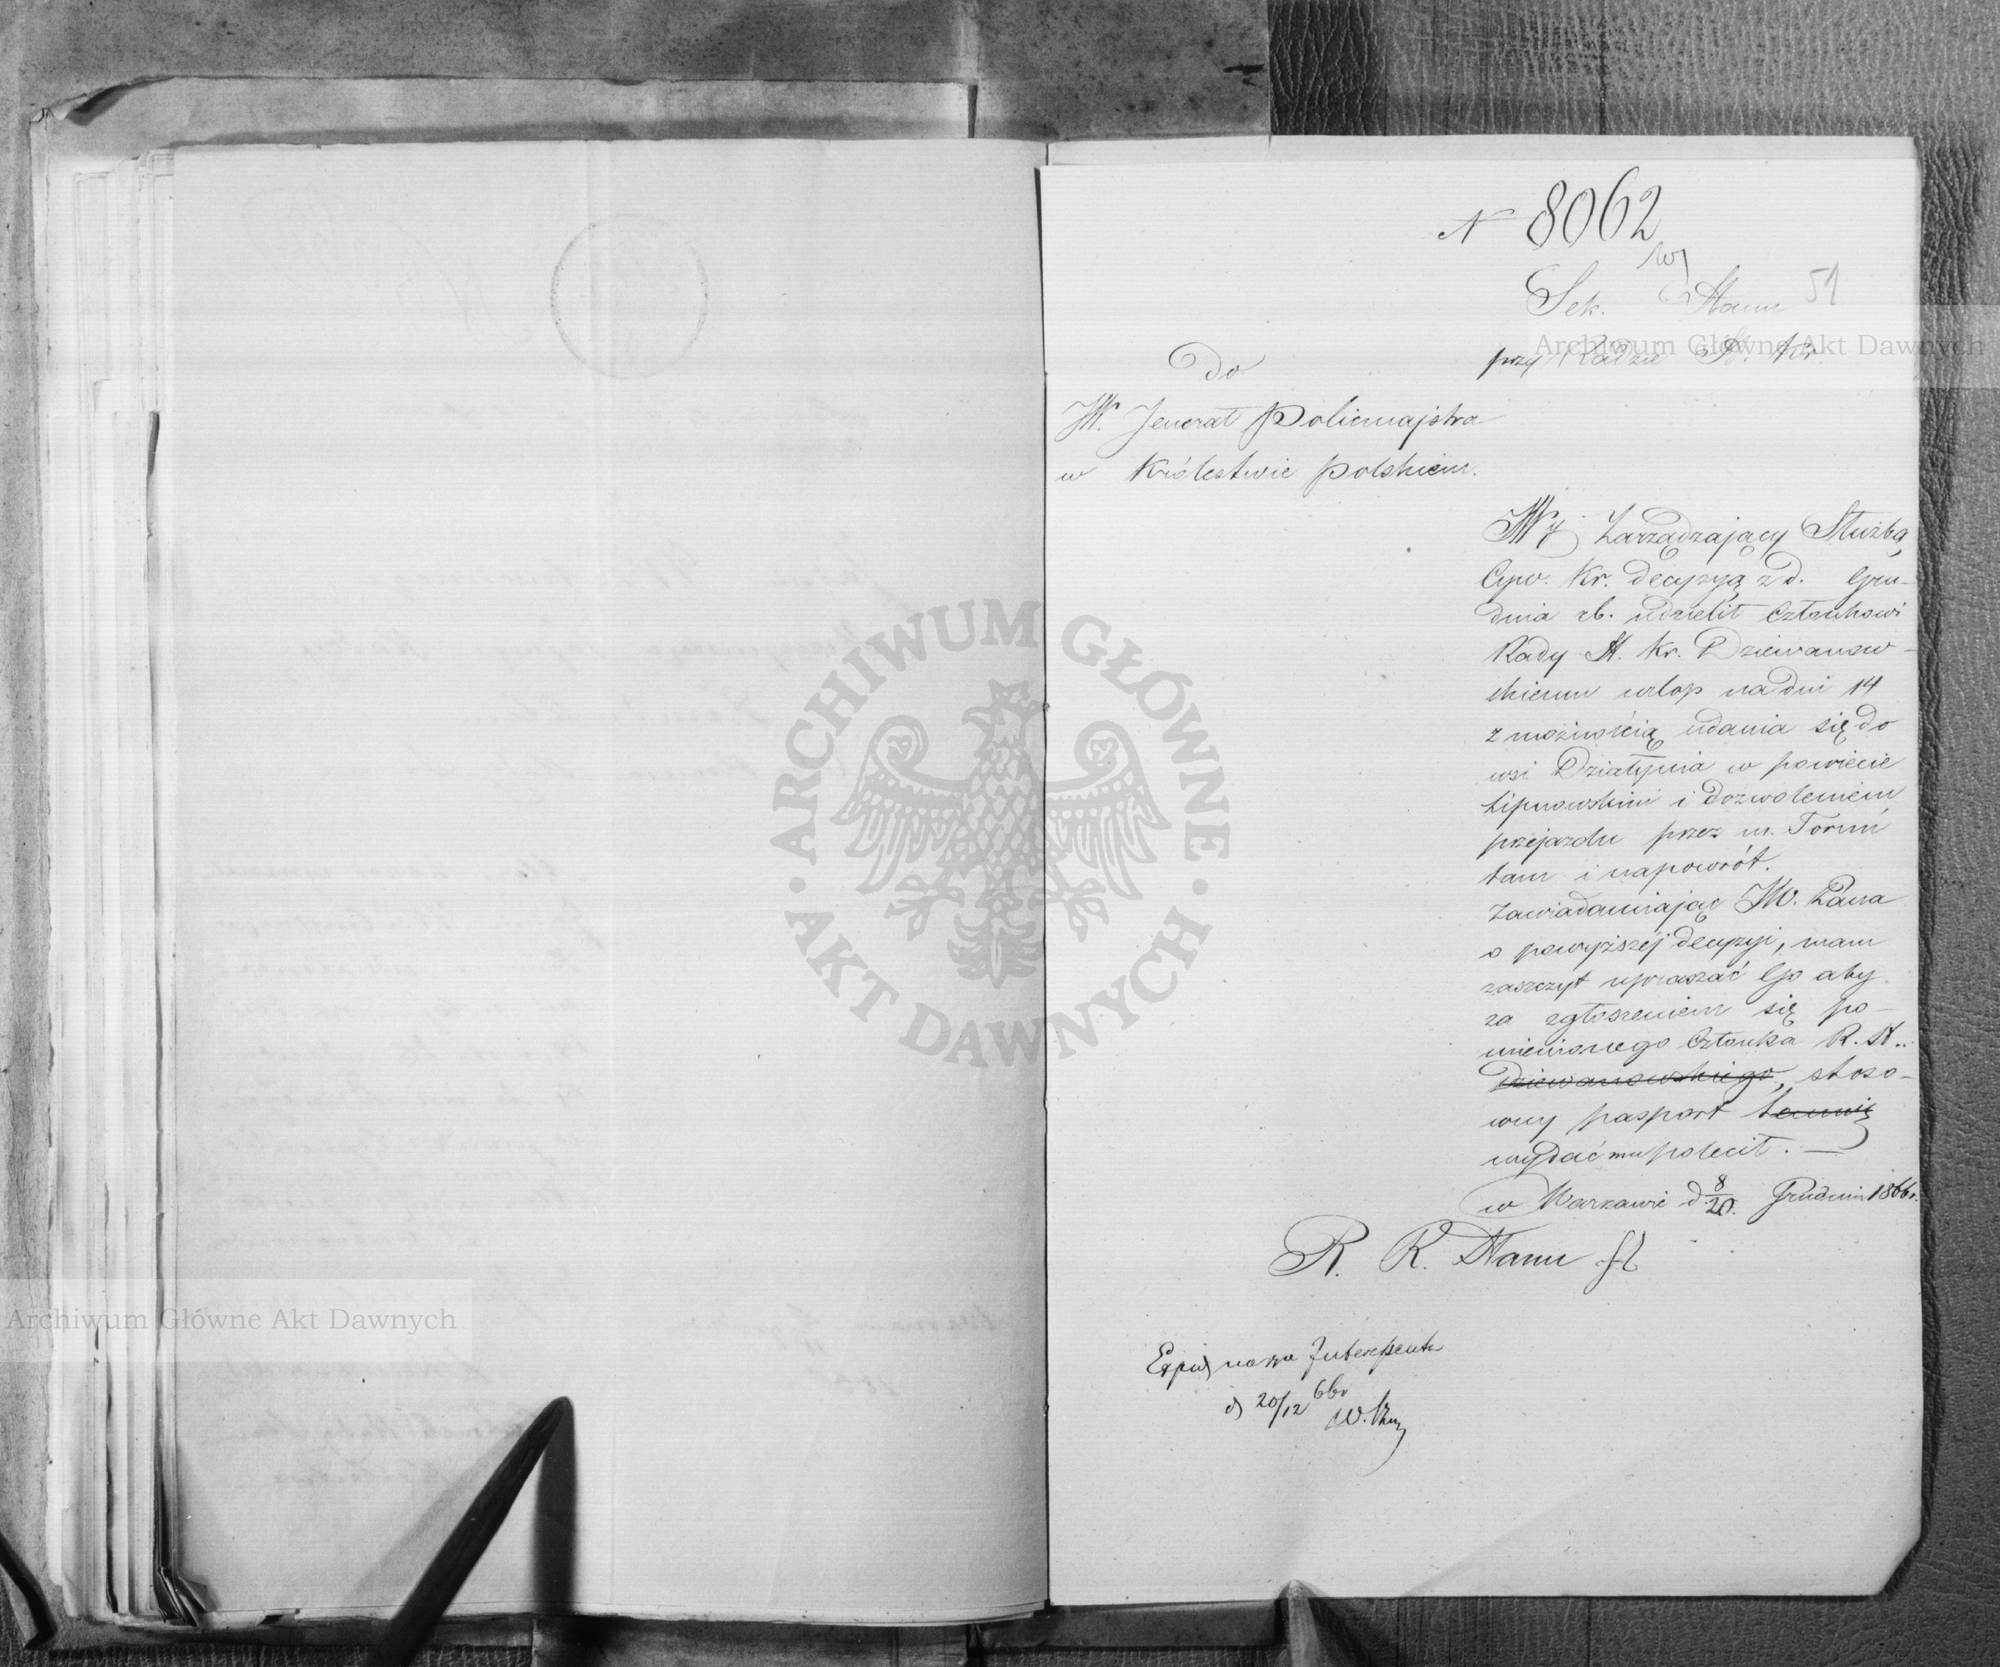 N 8062
Sek. Stanu 51
przy Radzie St. Kr.
Do
JW. Jenerał Policmajstra
w Królestwie Polskiém.
JW Zarządzający Służbą
Cyw. Kr. decyzyą z d. Gru-
dnia rb. udzielił Członkowi
Rady St. Kr. Dziewanow-
skiemu urlop na dni 14
z możnością udania się do
wsi Działynia w powiecie
Lipnowskim i dozwoleniem
przejazdu przez m. Toruń
tam i napowrót.
Zawiadamiając JW. Pana
o powyższéj decyzyi, mam
zaszczyt upraszać Go aby
za zgłoszeniem się po-
mienionego Członka R. St.
Dziewanowskiego, stoso-
wny pasport
wydać mu polecił. —
w Warszawie d. 8/20. Grudnia 1866 r.
R. R. Stanu
na ręce Interessenta
d 20/12 66 r
Archiwum Główne Akt Dawnych
Archiwum Główne Akt Dawnych
ARCHIWUM GŁÓWNE
AKT DAWNYCH